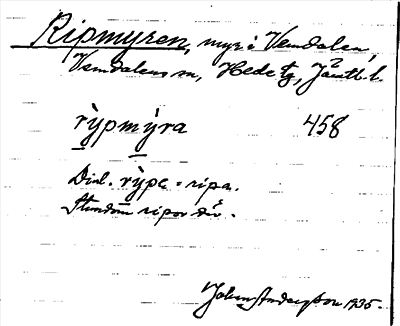 Ripmyren, myr i Vemdalen,
Vemdalens sn, Hede tg, Jämtl. l.
rỳpmýra 458
Dial. rỳpe = ripa.
Stundom ripor där.
Johan Anderson 1935.